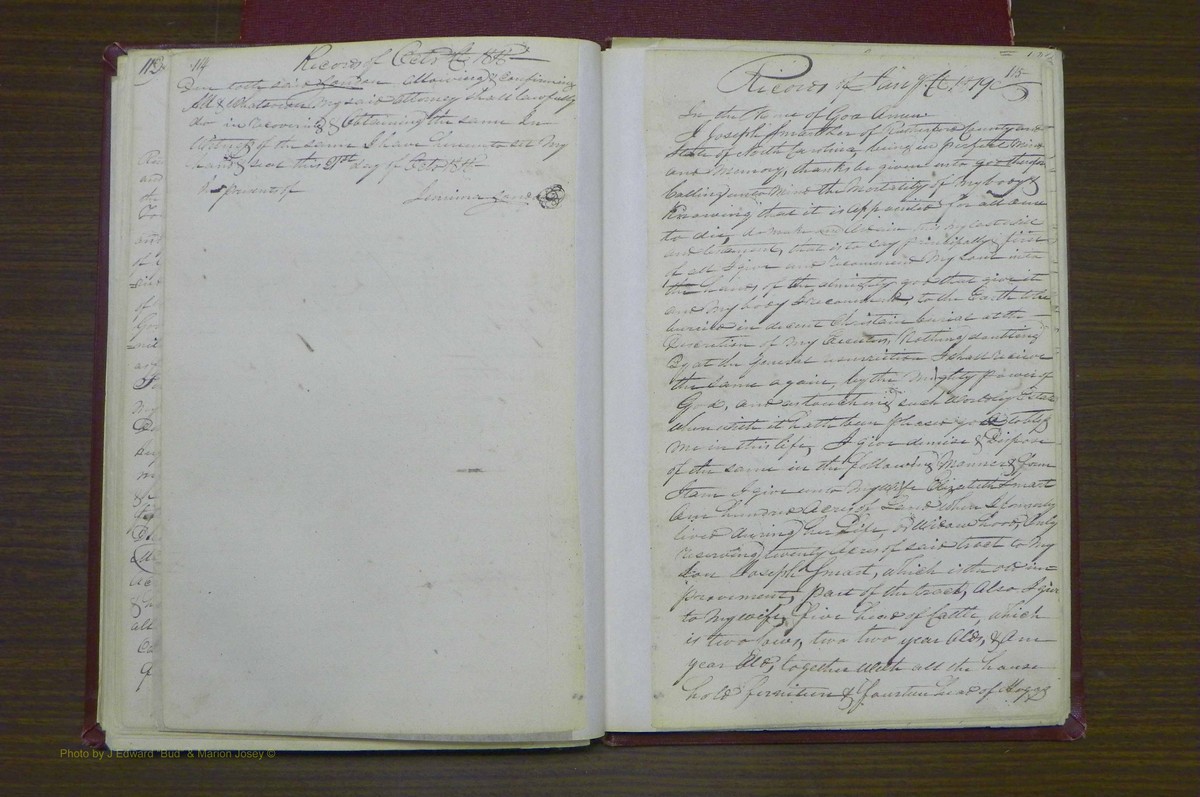 112
114
Record of Octr 1818
allowing & Confirming
All & Whatever My said attorney shall lawfully
do in recovering & Obtaining the same In
Witness of the same I have hereunto set My
hand & seal this day of Octr 1818
In presents of
Land
Record of 1819
115
In the Name of God Amen
I Joseph Smart of Rutherford County and
State of North Carolina being in perfect Mind
and Memory, thanks be given unto god therefore
Calling unto Mind the Mortality of my body &
Knowing that it is appointed for all
to die, do make and this my last will
and testament, that is to say principally & first
of all I give and recommend My soul into
the hands of the almighty god that give it
and My body I recommend, to the Earth to be
buried in decent Christain burial at the
discretion of My Nothing doubting
at the general I shall receive
the same again, by the Mighty Power of
God, and as touching such Worldly
Wherewith it hath been pleased god to bless
me in this life, I give demise & Dispose
of the same in the following Manner & form
Item I give unto My wife Elizabeth Smart
One hundred Acres of Land Where I formerly
lived during her Life, or Widowhood, Only
reserving twenty Acres of said tract to My
Son Joseph Smart, which is the old im-
provement, part of the tract, Also I give
to My wife, five head of Cattle, which
is two Cows, two two year Olds, & One
year Old, together with all the house
hold furniture & fourteen head of Hoggs
Photo by J Edward "Bud" & Marion Josey ©